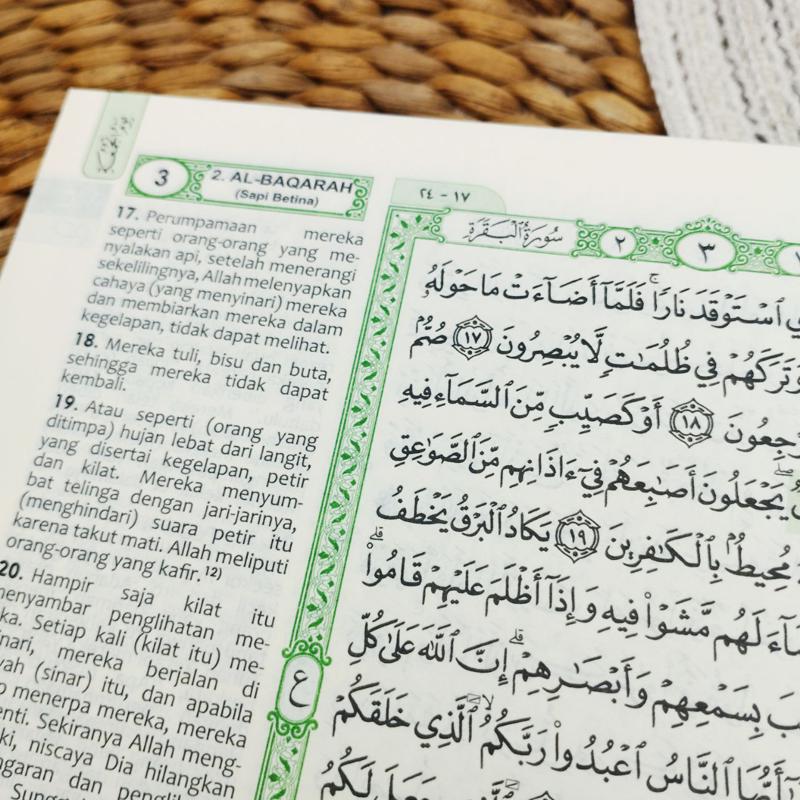 3
2. AL-BAQARAH
(Sapi Betina)
17. Perumpamaan mereka
seperti orang-orang yang me-
nyalakan api, setelah menerangi
sekelilingnya, Allah melenyapkan
cahaya (yang menyinari) mereka
dan membiarkan mereka dalam
kegelapan, tidak dapat melihat.
18. Mereka tuli, bisu dan buta,
sehingga mereka tidak dapat
kembali.
19. Atau seperti (orang yang
ditimpa) hujan lebat dari langit,
yang disertai kegelapan, petir
dan kilat. Mereka menyum-
bat telinga dengan jari-jarinya,
(menghindari) suara petir itu
karena takut mati. Allah meliputi
orang-orang yang kafir.¹²⁾
20. Hampir saja kilat itu
menyambar penglihatan me-
ka. Setiap kali (kilat itu) me-
nari, mereka berjalan di
yah (sinar) itu, dan apabila
menerpa mereka, mereka
enti. Sekiranya Allah meng-
ki, niscaya Dia hilangkan
ngaran dan
١٧ - ٢٤
سُورَةُ الْبَقَرَةِ
٢
٣
ٱسْتَوْقَدَ نَارًا فَلَمَّآ أَضَآءَتْ مَا حَوْلَهُۥ
وَتَرَكَهُمْ فِي ظُلُمَٰتٍ لَّا يُبْصِرُونَ ١٧ صُمٌّۢ
١٨ أَوْ كَصَيِّبٍ مِّنَ ٱلسَّمَآءِ فِيهِ
يَجْعَلُونَ أَصَٰبِعَهُمْ فِيٓ ءَاذَانِهِم مِّنَ ٱلصَّوَٰعِقِ
مُحِيطٌۢ بِٱلْكَٰفِرِينَ ١٩ يَكَادُ ٱلْبَرْقُ يَخْطَفُ
لَهُم مَّشَوْا۟ فِيهِ وَإِذَآ أَظْلَمَ عَلَيْهِمْ قَامُوا۟ۚ
بِسَمْعِهِمْ وَأَبْصَٰرِهِمْۚ إِنَّ ٱللَّهَ عَلَىٰ كُلِّ
ٱلنَّاسُ ٱعْبُدُوا۟ رَبَّكُمُ ٱلَّذِي خَلَقَكُمْ
جَعَلَ لَكُمُ
ع